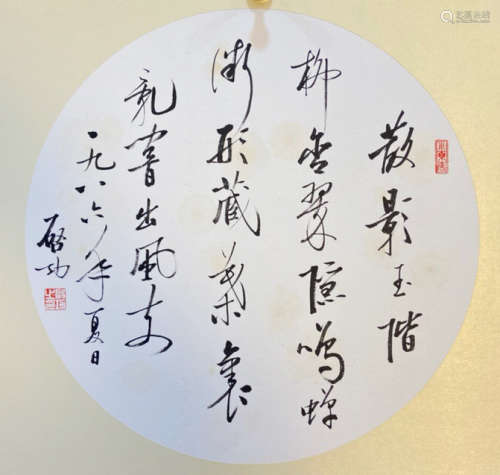 散影玉階
柳含翠隱鳴蟬
微形藏葉裏
亂響出風枝
一九八六年夏日
啟功